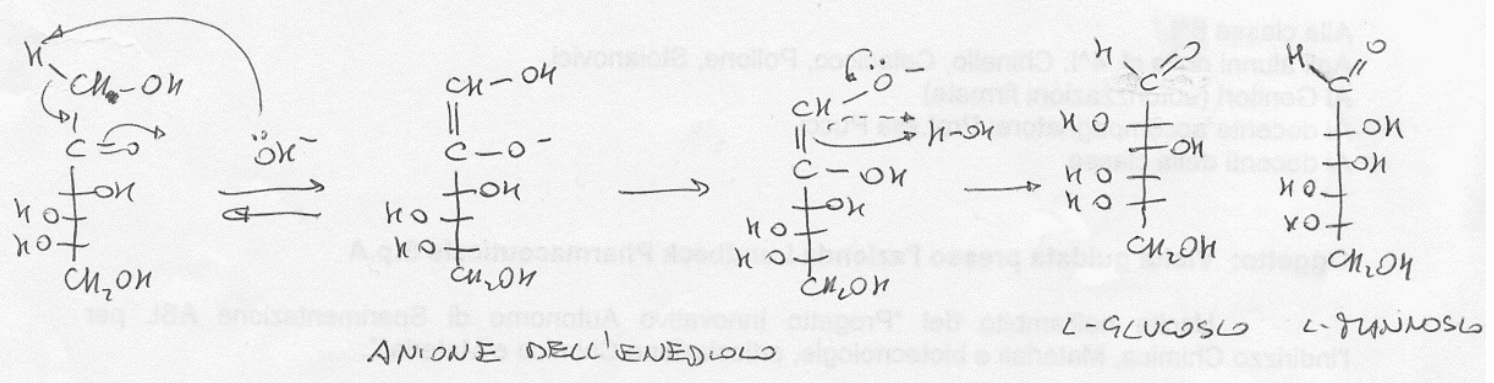 H
CH-OH
C=O
ÖH⁻
OH
HO
HO
CH₂OH
CH-OH
C-O⁻
OH
HO
HO
CH₂OH
ANIONE DELL'ENEDIOLO
CH-O⁻
H-OH
C-OH
OH
HO
HO
CH₂OH
H O
C
HO
OH
HO
HO
CH₂OH
L-GLUCOSIO
H O
C
OH
OH
HO
HO
CH₂OH
L-MANNOSIO